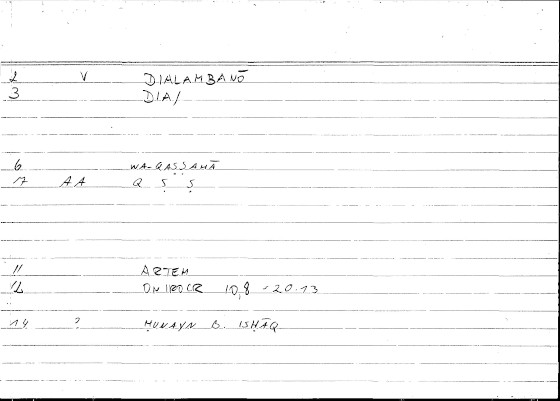 2 V DIALAMBANŌ
3 DIA/
6 WA-QAṢṢAHĀ
17 AA Q Ṣ Ṣ
11 ARTEM
12 ONIROCR 10,8 - 20.13
14 ? ḤUNAYN B. ISḤĀQ